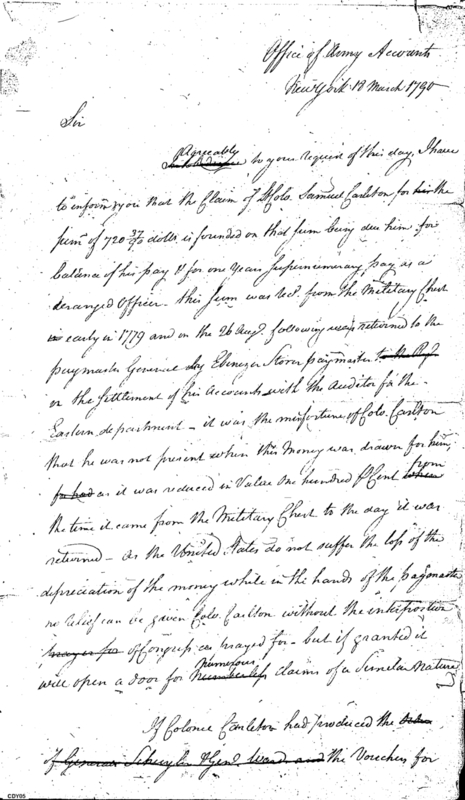 Office of Army Accounts
New York 18 March 1790
Sir
Agreeably
to your request of this day, I have
to inform you that the Claim of Lt Colo. Samuel Carlton for his the
sum of 720 37/90 dolls is founded on that sum being due him for
balance of his pay & for one Years Supernumerary pay as a
deranged Officer - this Sum was recd. from the Military Chest
early in 1779 and on the 26 Augt. following was returned to the
paymaster General by Ebenezer Storer paymaster to the
on the Settlement of his Accounts with the Auditor for the
Eastern department - it was the misfortune of Colo. Carlton
that he was not present when this Money was drawn for him,
as it was reduced in Value One hundred P Cent when from
the time it came from the Military Chest to the day it was
returned - as the United States do not suffer the loss of the
depreciation of the money while in the hands of the paymaster
no relief can be given Colo. Carlton without the interposition
prayed for of Congress as prayed for - but if granted it
numerous
will open a door for numberless claims of a Similar nature
If Colonel Carleton had produced the
of General Schuyler & Genl. Ward and the Vouchers for
CDY05